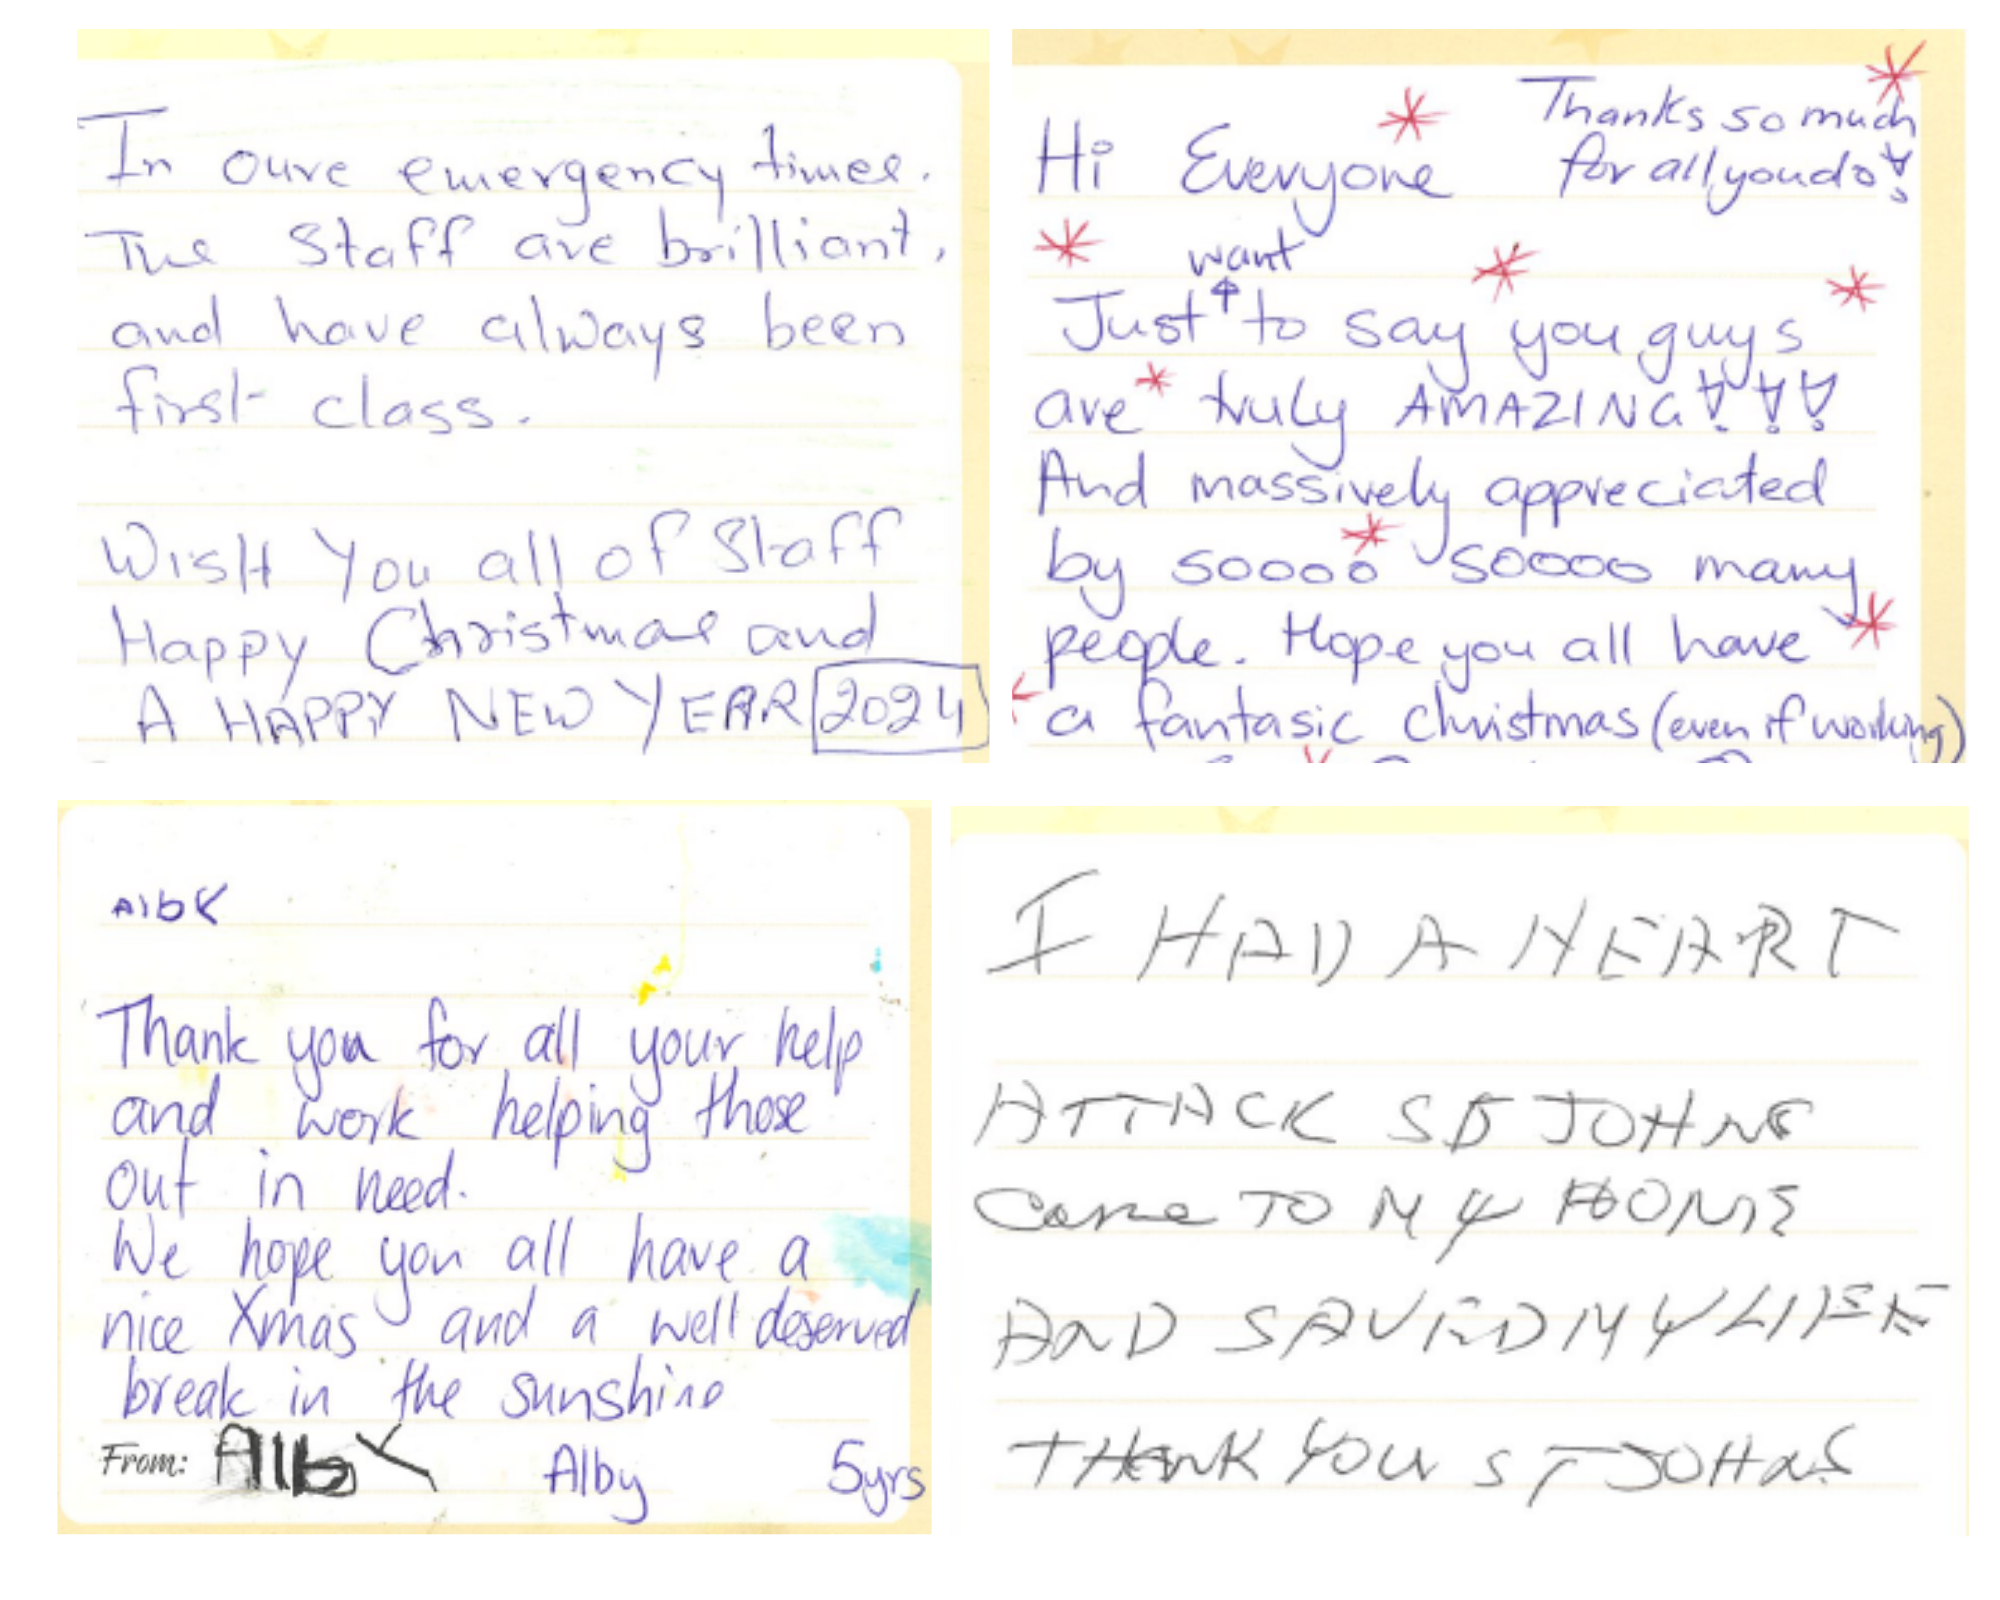 In oure emergency times.
The Staff are brilliant,
and have always been
first class.
Wish You all of Staff
Happy Christmas and
A HAPPY NEW YEAR 2024
Thanks so much
for all you do!
Hi Everyone
want
Just ↑ to say you guys
are truly AMAZING!!!
And massively appreciated
by soooo soooo many
people. Hope you all have
a fantasic Christmas (even if working)
Alby
Thank you for all your help
and work helping those
out in need.
We hope you all have a
nice Xmas and a well deserved
break in the sunshine
From: Alby Alby 5yrs
I HAD A HEART
ATTACK ST JOHNS
Came TO MY HOME
AND SAVED MY LIFE
THANK YOU ST JOHNS